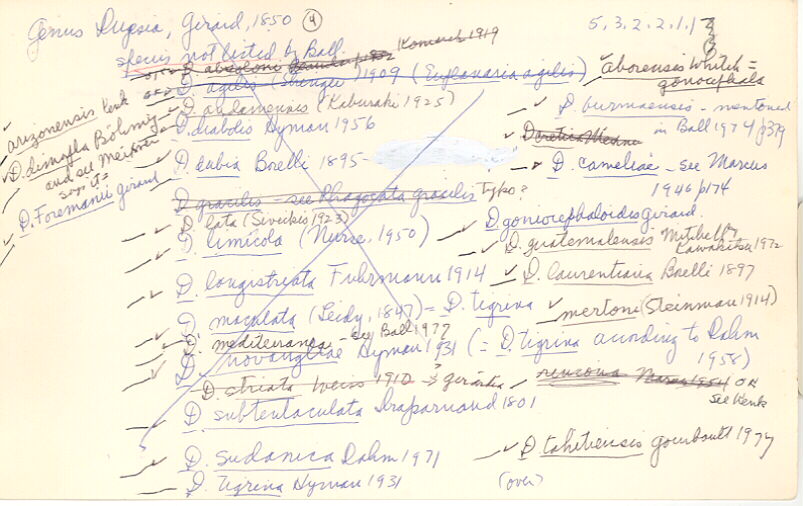 Genus Dugesia, Girard, 1850 (4)
5, 3. 2. 2. 1. 1
species not listed by Ball.
D. absoloni Komarek 1919
D. agilis (Stringer) 1909 (Euplanaria agilis)
aborensis Whiteh =
gonocephala
D. andamensis (Kaburaki 1925)
arizonensis Kenk
D. burmaensis - mentioned
in Ball 1974/p379
D. diabolis Hyman 1956
D. cretica Meixner
D. bismogla Böhmig
and see Meixner
says it =
D. dubia Borelli 1895-
D. cameliae - see Marcus
1946/p174
D. Foremanii Girard
D gracilis - see Phagocata gracilis Typo?
D. lata (Sivickis 1923)
D. goniocephaloides Girard.
D. limicola (Nurse, 1950)
D. guatemalensis Mitchell &
Kawakatsu 1972
D. longistriata Fuhrmann 1914
D. laurentiana Borelli 1897
D. maculata (Leidy, 1847) = D. tigrina
mertoni (Steinmann 1914)
D. mediteranea - see Ball 1977
D. novangliae Hyman 1931 (= D. tigrina according to Dahm
1958)
D. striata Weiss 1910 → Girardia
rincona Marcus 1954 OK
see Kenk
D subtentaculata Draparnaud 1801
D. sudanica Dahm 1971
D tahitiensis Gourbault 1977
D. tigrina Hyman 1931
(over)